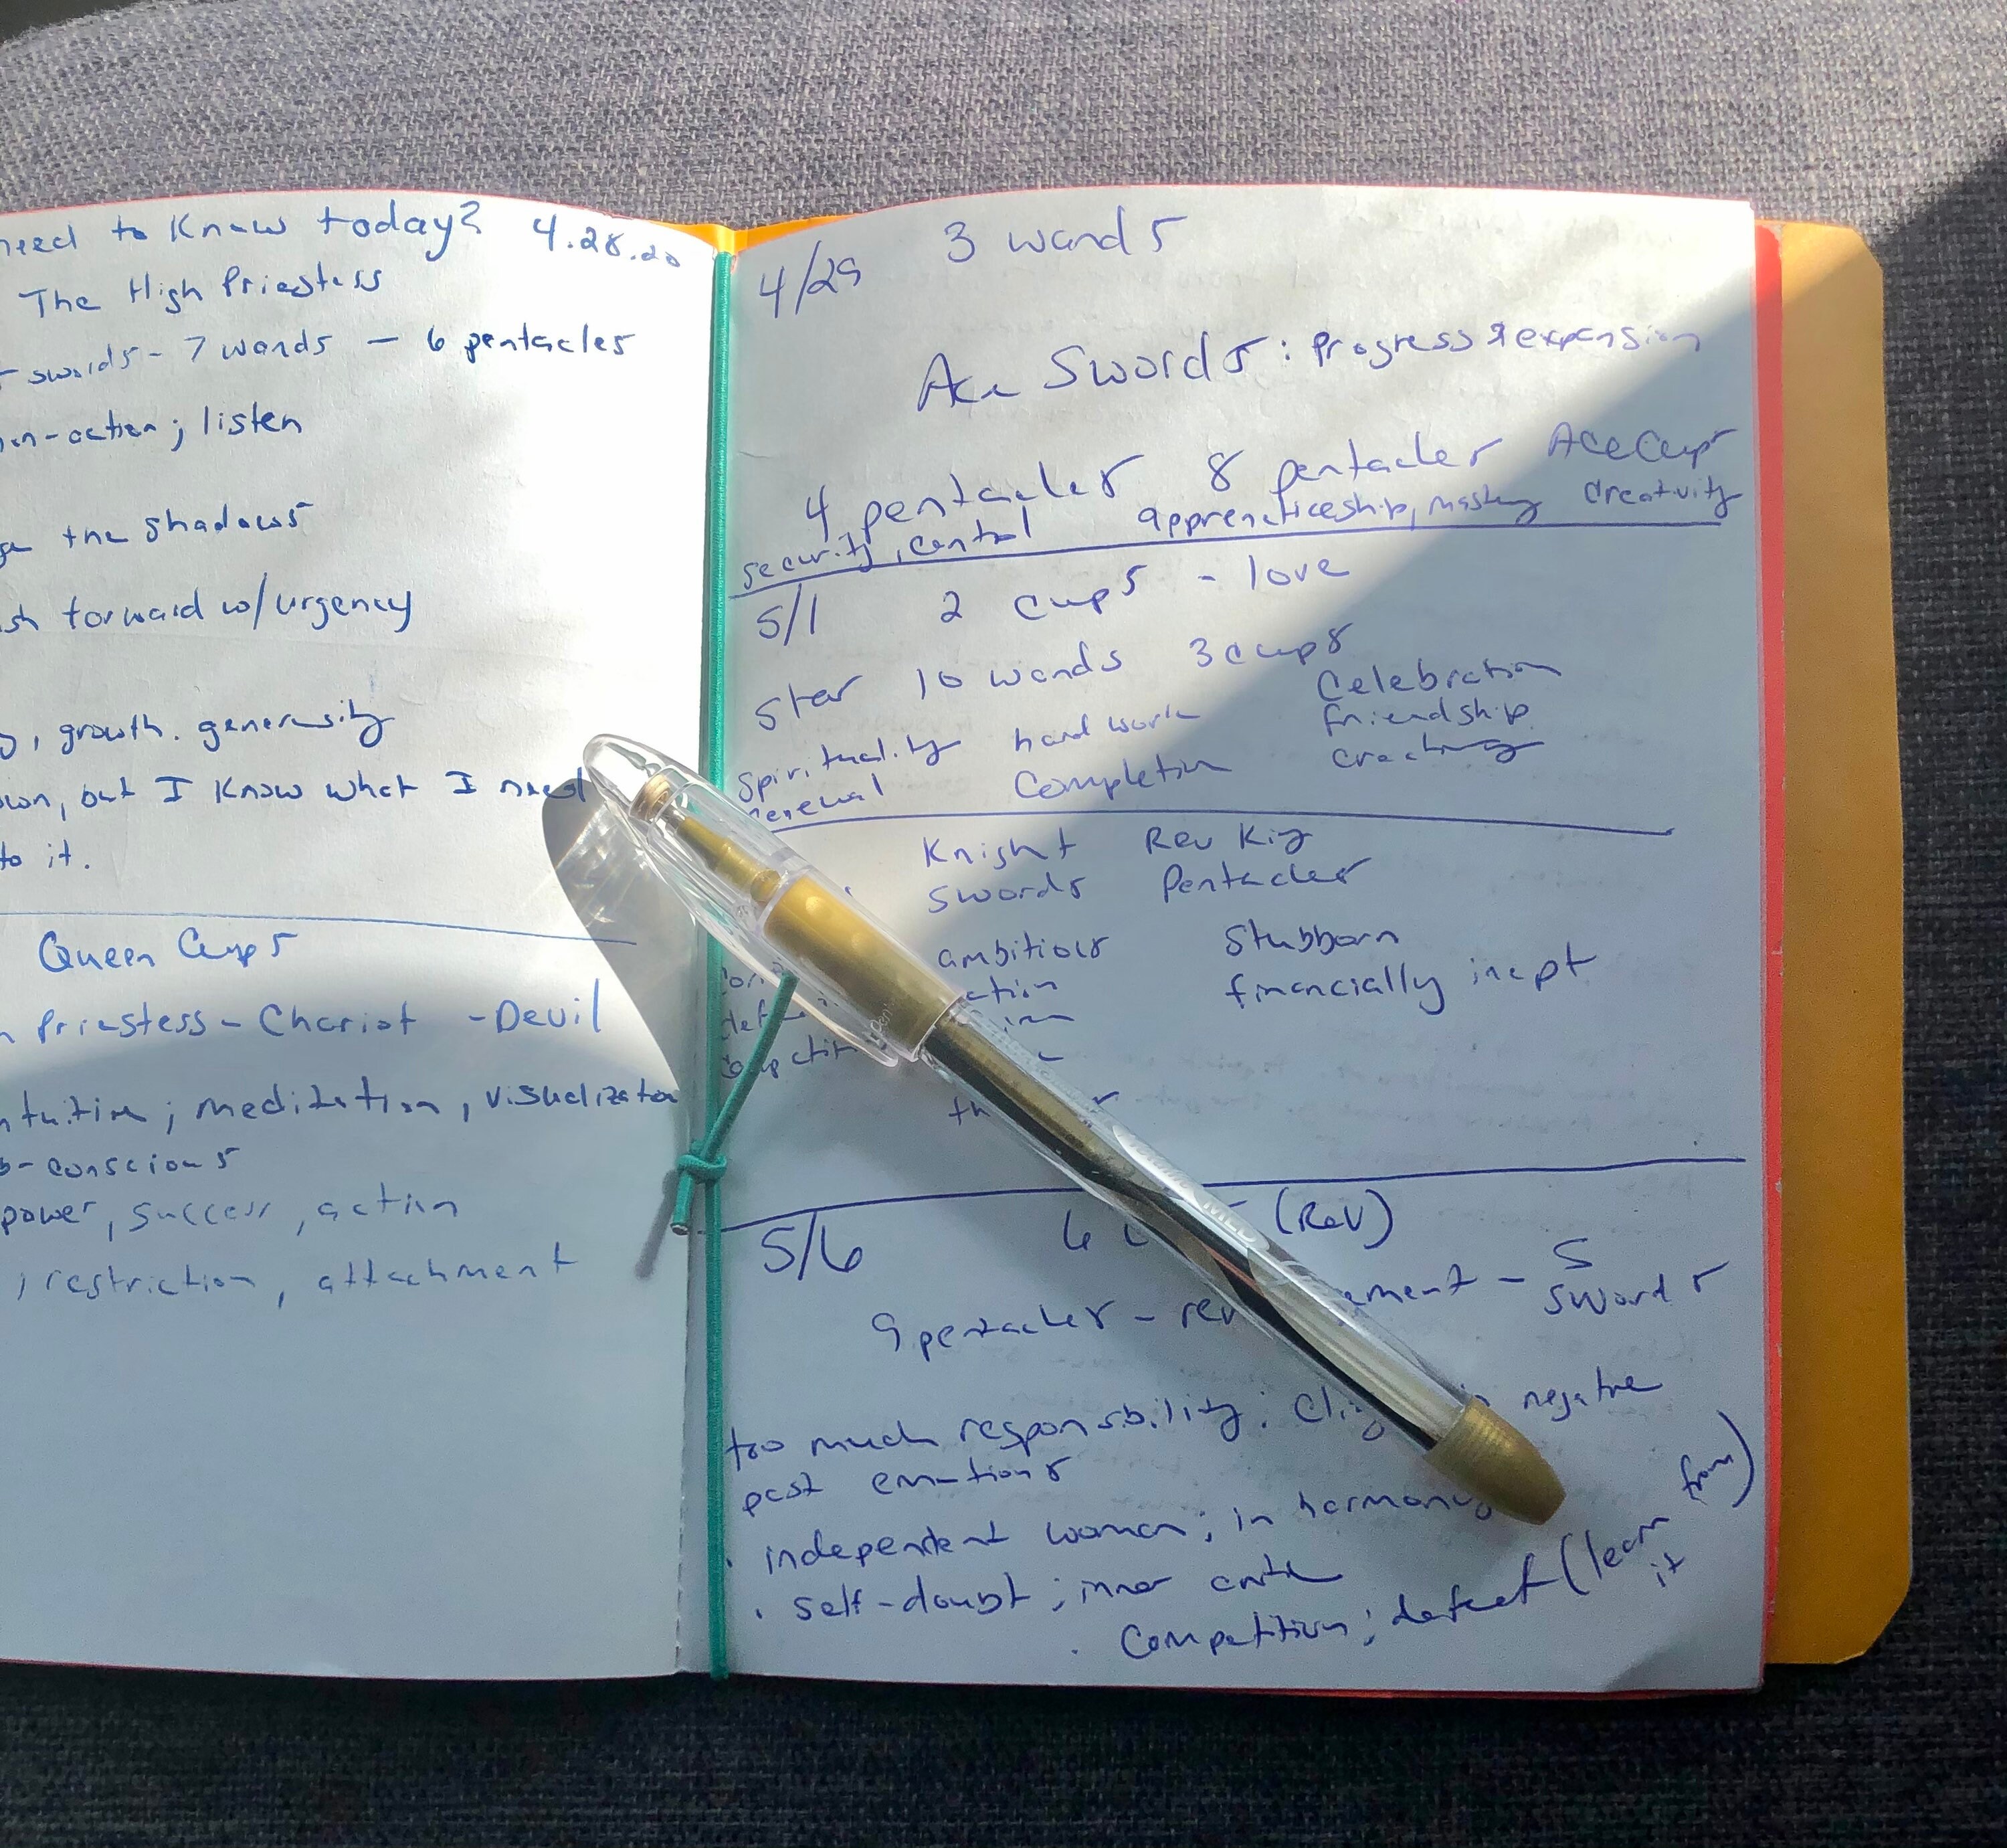 need to Know today? 4.28.20
The High Priestess
swords - 7 wands - 6 pentacles
non-action; listen
the shadows
forward w/urgency
, growth. generosity
own, but I know what I need
to it.
Queen Cups
Priestess - Chariot - Devil
; meditation, visualization
b-conscious
power, success, action
, restriction, attachment
4/29 3 wands
Ace Swords: Progress & expansion
4 pentacles 8 pentacles Ace Cups
security, control apprenticeship, mastery creativity
5/1 2 cups - love
Star 10 wands 3 cups
Spirituality hard work Celebration
renewal Completion friendship
Knight Rev King
Swords Pentacles
ambitious Stubborn
financially inept
5/6 6 (Rev)
9 pentacles - 5
swords
too much responsibility; negative
past emotions
. independent woman; in harmony
. self-doubt; inner critic
. Competition; defeat (learn from it)